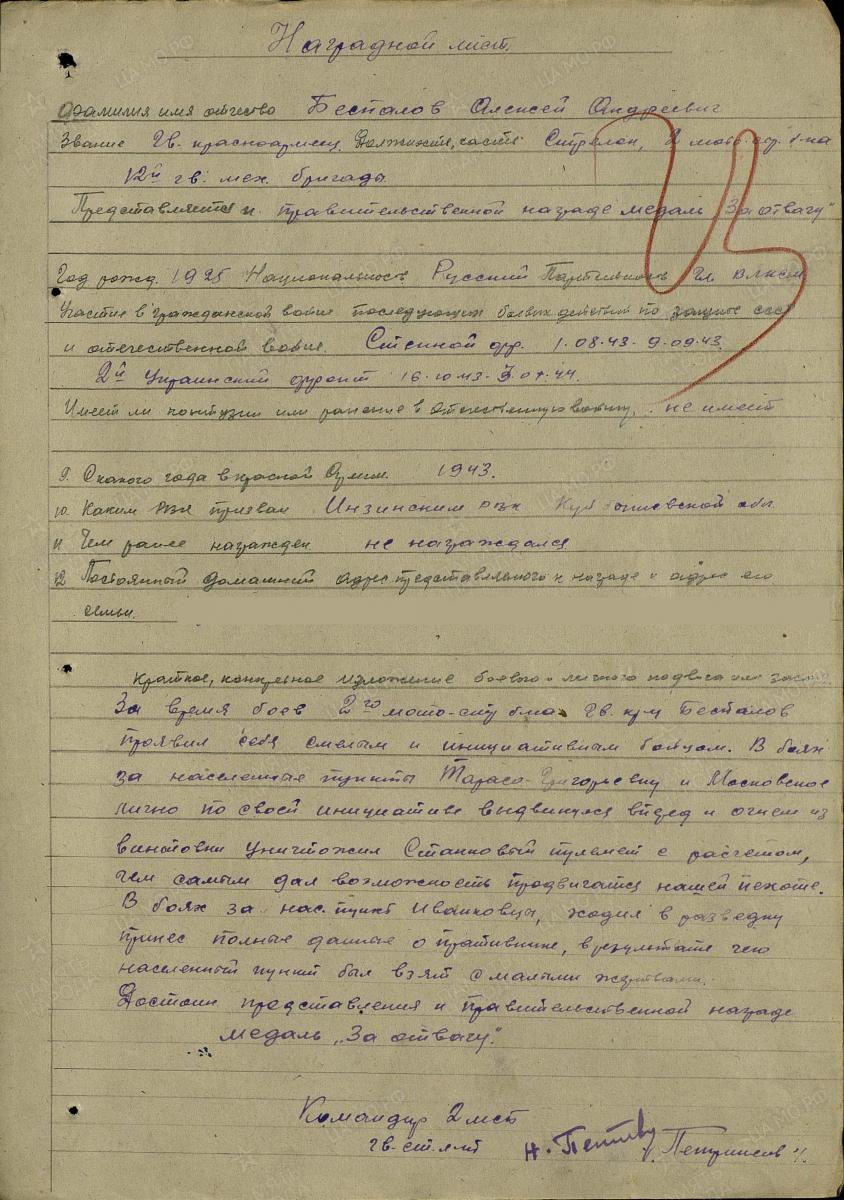 Наградной лист.
Фамилия имя отчество Беспалов Алексей Андреевич
Звание Гв. красноармеец Должность, часть Стрелок, 2 мото. стр. б-на
12й гв. мех. бригада
Представляется к правительственной награде медаль "За отвагу"
Год рожд. 1925 Национальность Русский Партийность чл. ВЛКСМ
Участие в гражданской войне последующих боевых действий по защите ссср
и отечественной войне. Степной фр. 1.08.43-9.09.43.
2й Украинский фронт 16.10.43-
Имеет ли контузии или ранение в отечественную войну. не имеет
9. С какого года в красной Армии. 1943.
10. Каким РВК призван Инзинским РВК Куйбышевской обл.
11 Чем ранее награжден не награждался
12 Постоянный домашний адрес представляемого к награде и адрес его
семьи.
Краткое, конкретное изложение боевого и личного подвига или заслуг
За время боев 2го мото-стр б-на гв. кр-ц Беспалов
проявил себя смелым и инициативным бойцом. В боях
за населенные пункты Тарасо-Григорьевку и Московское
лично по своей инициативе выдвинулся вперед и огнем из
винтовки уничтожил Станковый пулемет с расчетом,
чем самым дал возможность продвигатся нашей пехоте.
В боях за нас. пункт Иванковцы, ходил в разведку
принес полные данные о противнике, в результате чего
населенный пункт был взят с малыми жертвами.
Достоин представления к правительственной награде
медаль „За отвагу".
Командир 2 мсб
гв. ст. л-нт